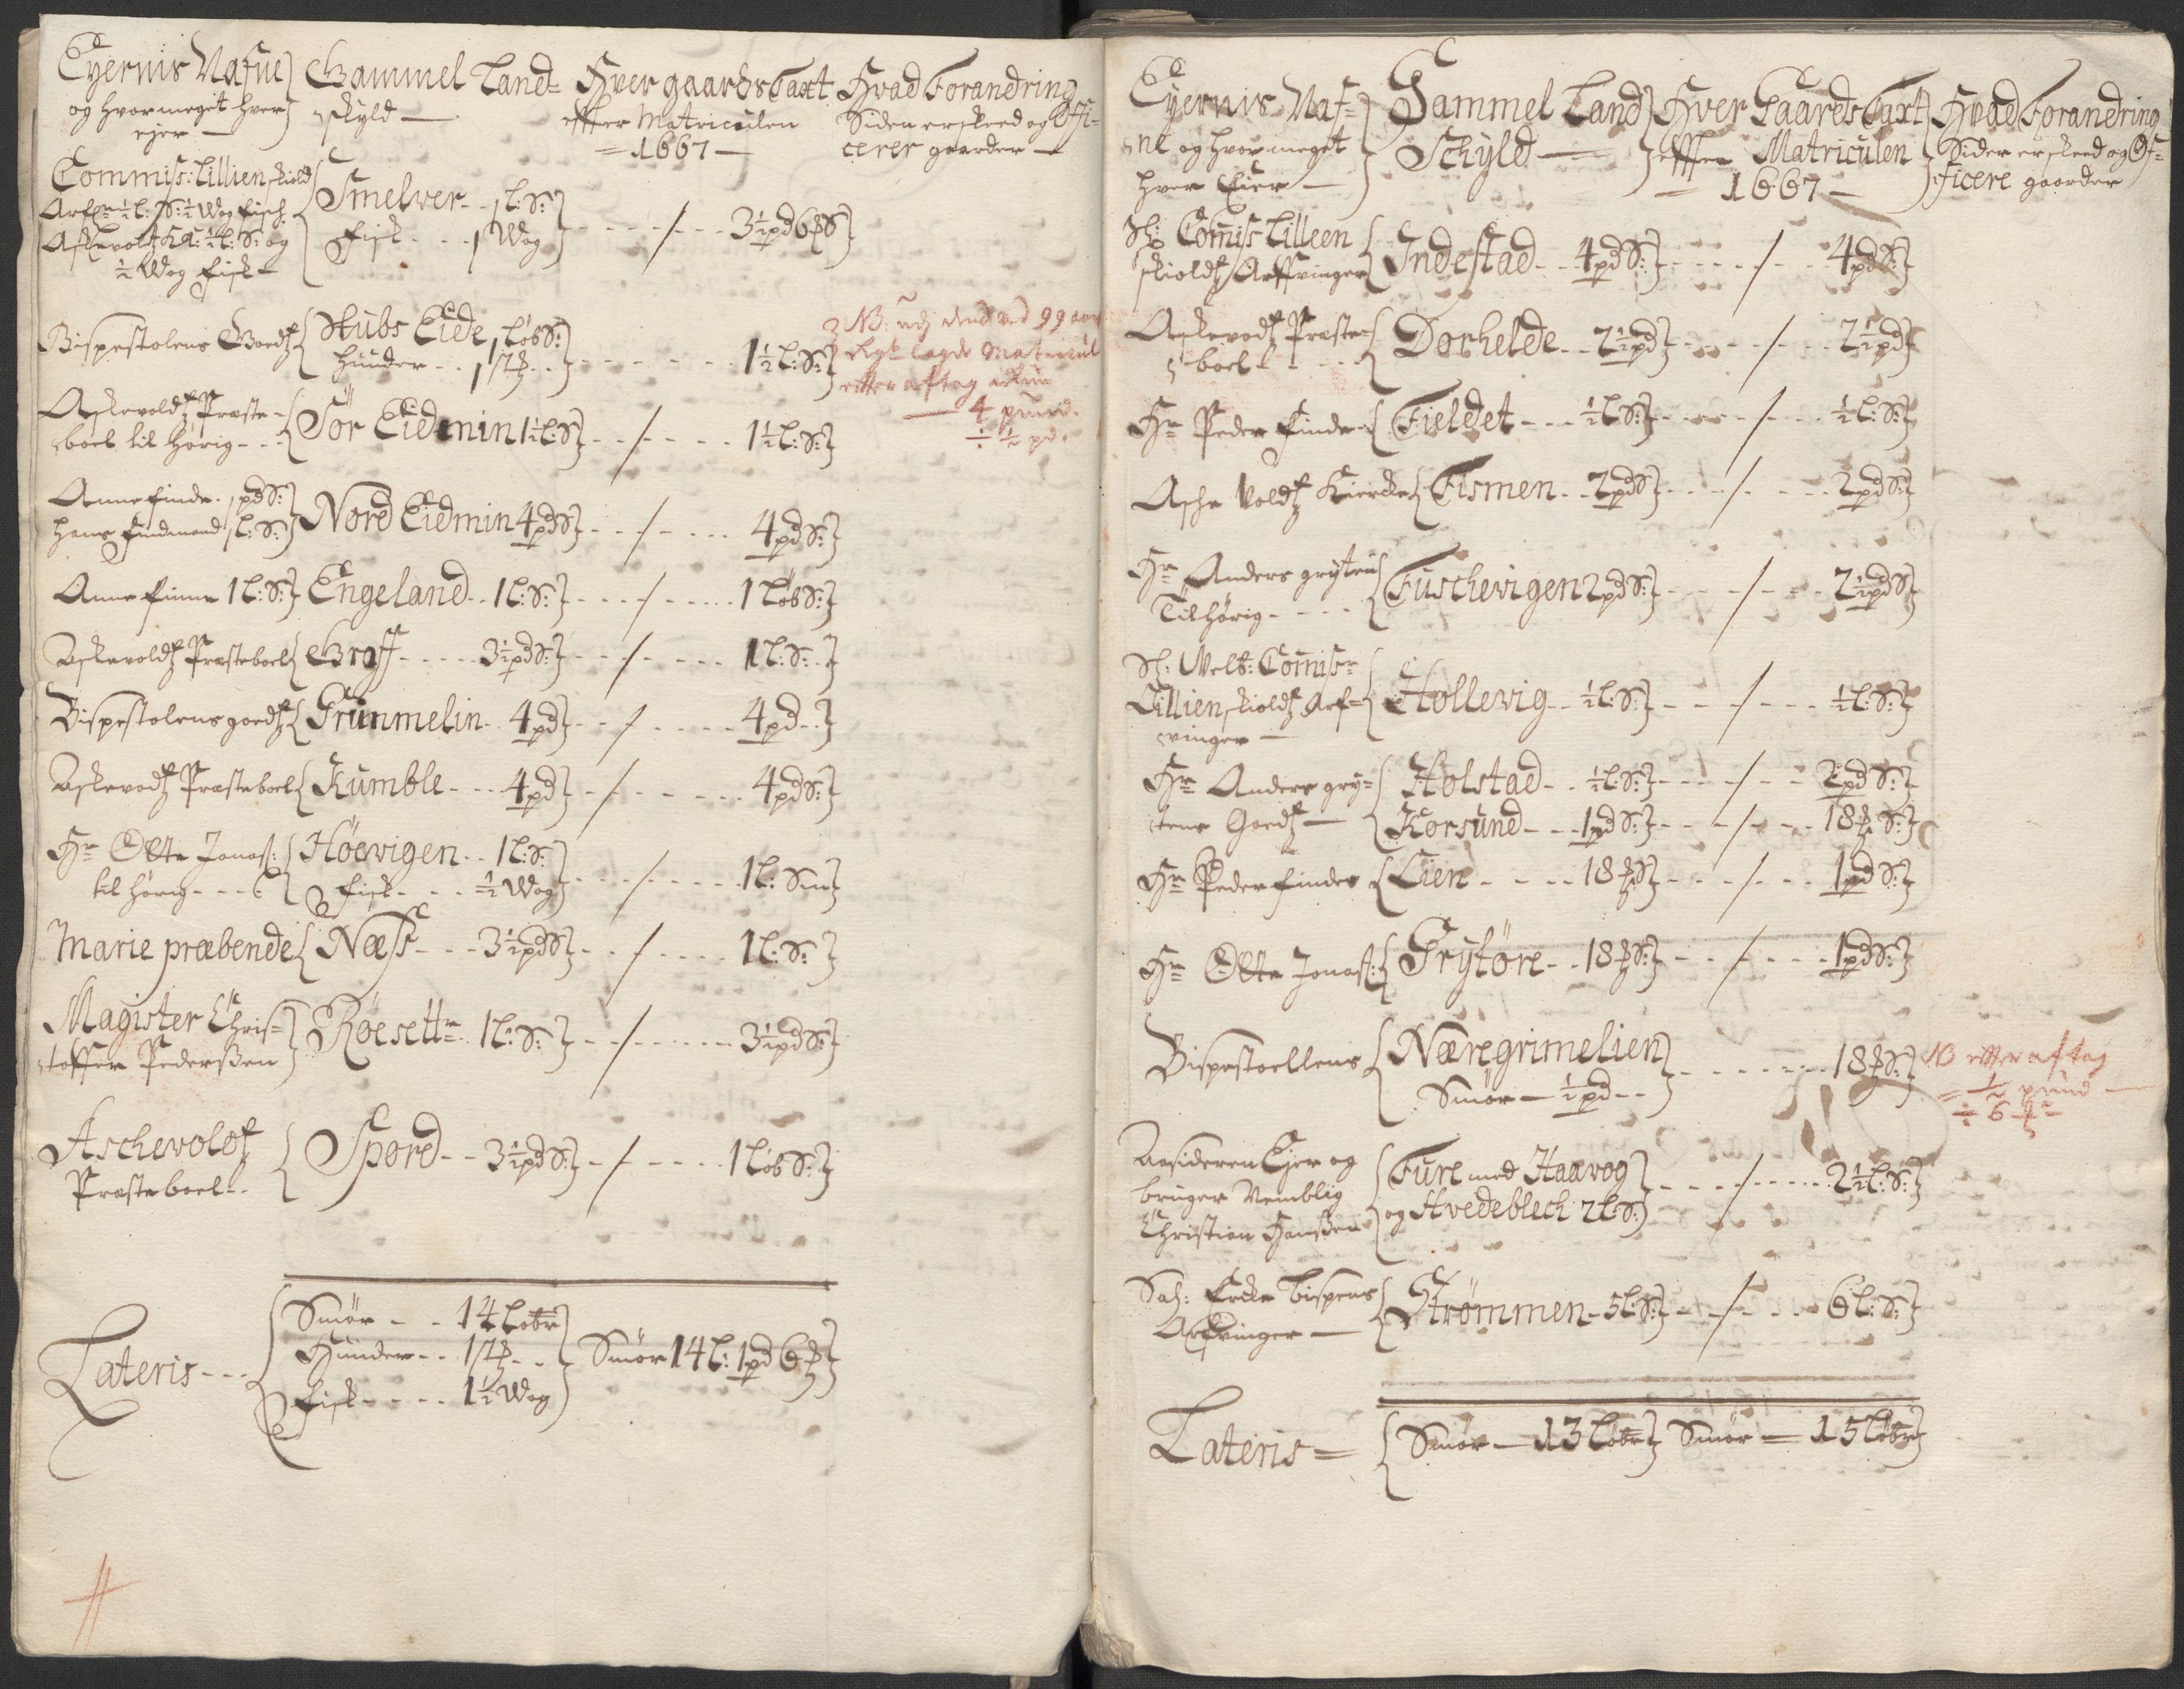 Eyernis Nafne
og hvor meget hver
ejer
Gammel Land=
skyld
Hver gaards Taxt
effter Matriculen
1667
Hvad Forandring
Siden er skeed og Offi=
cerer gaarder
Commiss: Lillienskiold
Arf: ½ l: S: ½ Wog fisch
Askevoldz K: ½ l: S: og
½ Wog fisk
Smelver - - 1 l: S:
fisk - - - 1 Wog
3½ pd 6 S
Bispestolens Goedz
Stubs Eide 1 løb S:
Huuder - - 1 st
1½ l: S:
NB: udj dend ved 99 aar
lagde Matricul
effter aftag
4 pund.
÷ ½ pd.
Askevoldz Præste=
boel til hørig - - -
Sör Eidmin 1½ l: S
1½ l: S:
Anne finde 1 pd S:
Hans findmand 1 l: S:
Nord Eidmin 4 pd S
4 pd S:
Anne finne 1 l: S:
Engeland - - 1 l: S:
1 Løb S:
Askevoldz Præsteboel
Graff - - - - 3½ pd S:
1 l: S:
Bispestolens goedz
Grünmelin - 4 pd
4 pd
Askevodz Præsteboel
Kumble - - - 4 pd
4 pd S:
Hr Otte Jonas:
til hørig - - -
Höevigen - - 1 l: S:
fisk - - - ½ Wog
1 l: Sm
Marie præbende
Næss - - - 3½ pd S
1 l: S:
Magister Chris=
toffer Pederssen
Röesettr 1 l: S:
3½ pd S:
Aschevoldz
Præsteboel - -
Spord - - 3½ pd S:
1 løb S:
Lateris - - -
Smör - - 14 Løbr
Huuder - - 1 st
fisk - - - - 1½ Wog
Smör 14 l: 1 pd 6
Eyernis Naf=
ne og hvor meget
hver Eier
Gammel Land
Schyld
Hver Gaards Taxt
effter Matriculen
1667
Hvad Forandring
Siden er skeed og Of=
ficere gaarder
Sl: Comiss Lillien
skioldz Arffvinger
Indestad - - 4 pd S:
4 pd S:
Askevodz Præste=
boel
Dorhelde - - 2½ pd
2½ pd
Hr Peder finde
Fieldet - - - ½ l: S:
½ l: S:
Asche Voldz Kiercke
Fismen - - 2 pd S
2 pd S:
Hr Anders gryten
Tilhørig - - - -
Fuschevigen 2 pd S:
2½ pd S
Sl: Welb: Comiss
Lillienskioldz Arf=
vinger
Hollevig - - ½ l: S:
½ l: S:
Hr Anders gry=
tens Goedz
Holstad - - ½ l: S:
2 pd S:
Korsund - - - 1 pd S:
18 S:
Hr Peder findes
Lien - - - - 18 S
1 pd S:
Hr Otte Jonas:
Grytöre - - 18 S:
1 pd S:
Bispestoellens
Næregrimelien
Smör - ½ pd - -
18 S:
NB effter aftag
½ pund
÷ 6
Aasideren Ejer og
bruger Nemblig
Christian Hanssen
Fure med Haavog
og Hvedeblech 2 l: S:
2½ l: S:
Sal: Ercke Bispens
Arffvinger
Strømmen - 5 l: S:
6 l: S:
Lateris =
Smör - 13 Løbr
Smör = 15 Løbr